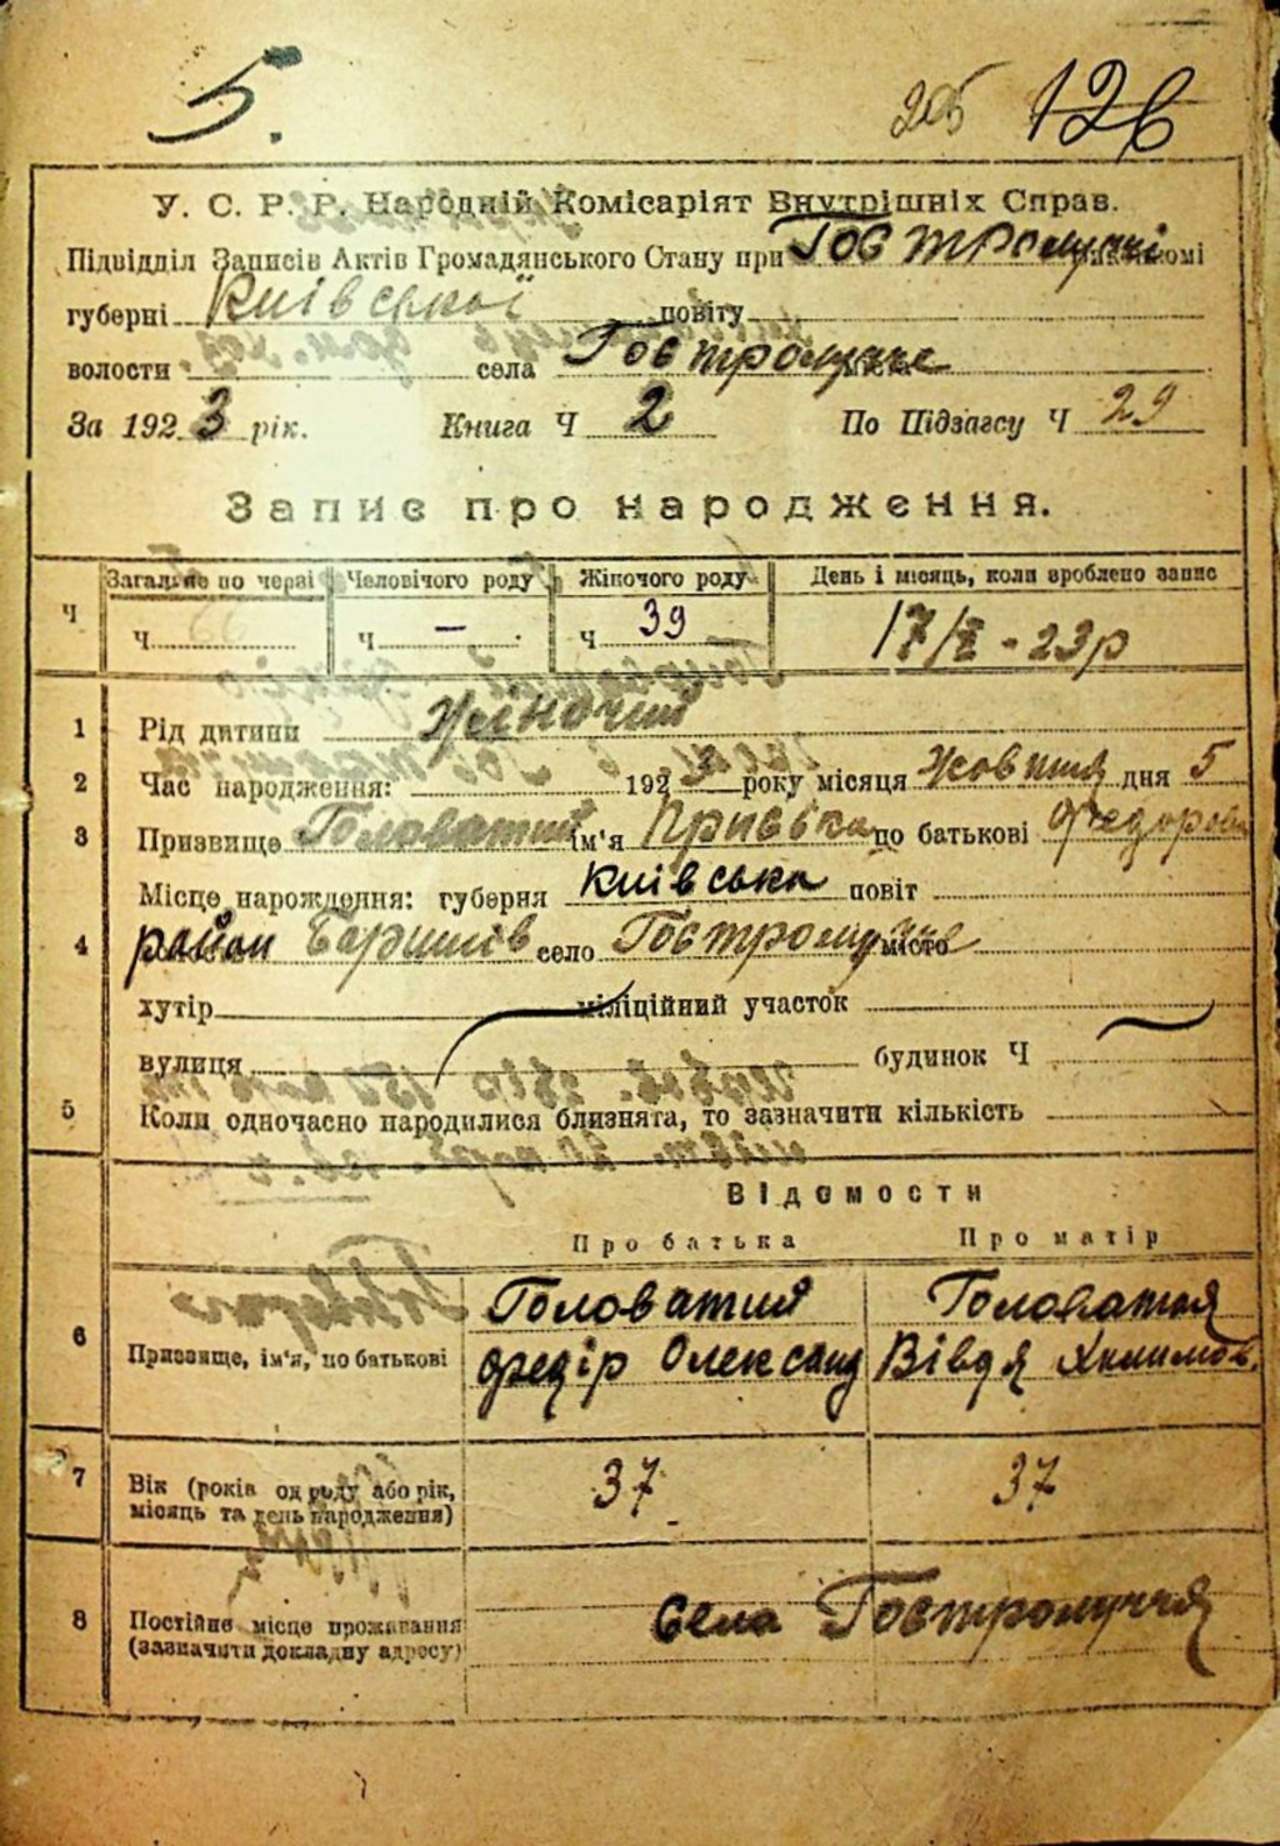 5. 205 126
У. С. Р. Р. Народній Комісаріят Внутрішніх Справ.
Підвідділ Записів Актів Громадянського Стану при Гостролуцкі
губерні Київської повіту
волости села Гостролуччє
За 1923 рік. Книга Ч 2 По Підзагсу Ч 29
Запис про народження.
Загальне по черзі Человічого роду Жіночого роду День і місяць, коли зроблено запис
Ч Ч Ч — Ч 39 17/X - 23р
1 Рід дитини Жіночий
2 Час народження: 1923 року місяця Жовтня дня 5
3 Призвище Головатий ім'я Приська по батькові Федоров
Місце нарождення: губерня Київська повіт
4 район Баришів село Гостролуччє місто
хутір міліційний участок
вулиця будинок Ч
5 Коли одночасно народилися близнята, то зазначити кількість
Відомости
Про батька Про матір
Головатий Головатая
6 Призвище, ім'я, по батькові Федір Олександ Вівдя Химимов.
7 Вік (років од роду або рік, 37 37
місяць та день народження)
8 Постійне місце проживання Села Гостролуччя
(зазначити докладну адресу)